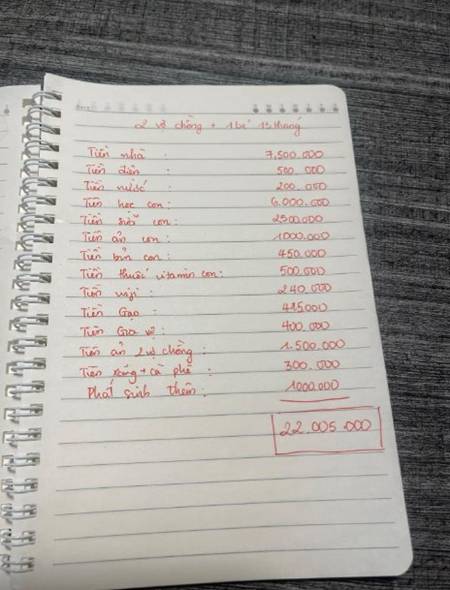 2 vợ chồng + 1 bé 13 tháng
Tiền nhà : 7,500.000
Tiền điện : 500.000
Tiền nước : 200.000
Tiền học con : 6.000.000
Tiền sữa con : 2500.000
Tiền ăn con : 1000.000
Tiền bỉm con : 450.000
Tiền thuốc vitamin con : 500.000
Tiền wifi : 240.000
Tiền Gạo : 415000
Tiền Gia vị : 400.000
Tiền ăn 2 vợ chồng : 1.500.000
Tiền xăng + cà phê : 300.000
Phát sinh thêm : 1000.000
22.005.000